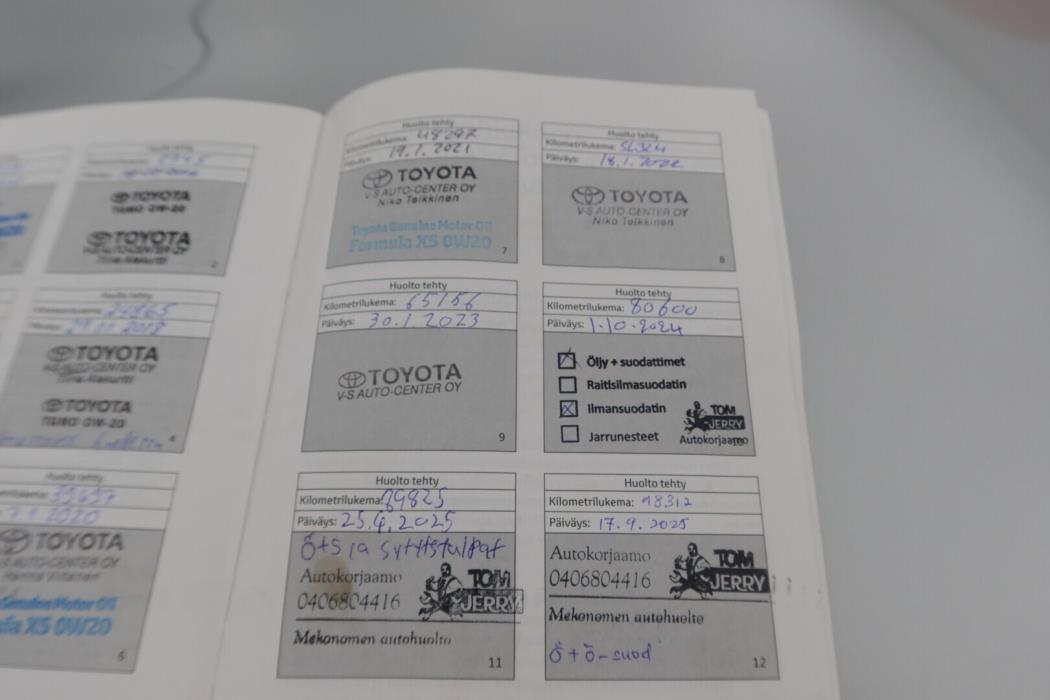 Huolto tehty
TOYOTA
TOYOTA
2
Huolto tehty
24865
29.11.2018
TOYOTA
TOYOTA
4
Huolto tehty
39697
2020
TOYOTA
6
Huolto tehty
Kilometrilukema: 48297
Päiväys: 19.1.2021
TOYOTA
V-S AUTO-CENTER OY
Niko Teikkinen
Toyota Genuine Motor Oil
Formula XS 0W20
7
Huolto tehty
Kilometrilukema: 56324
Päiväys: 18.1.2022
TOYOTA
V-S AUTO-CENTER OY
Niko Teikkinen
8
Huolto tehty
Kilometrilukema: 65156
Päiväys: 30.1.2023
TOYOTA
V-S AUTO-CENTER OY
9
Huolto tehty
Kilometrilukema: 80600
Päiväys: 1.10.2024
Öljy + suodattimet
Raitisilmasuodatin
Ilmansuodatin
Jarrunesteet
TOM
JERRY
Autokorjaamo
10
Huolto tehty
Kilometrilukema: 89825
Päiväys: 25.4.2025
Ö+S ja sytytystulpat
Autokorjaamo
0406804416
TOM
JERRY
Mekonomen autohuolto
11
Huolto tehty
Kilometrilukema: 98312
Päiväys: 17.9.2025
Autokorjaamo
0406804416
TOM
JERRY
Mekonomen autohuolto
Ö+Ö-suod
12